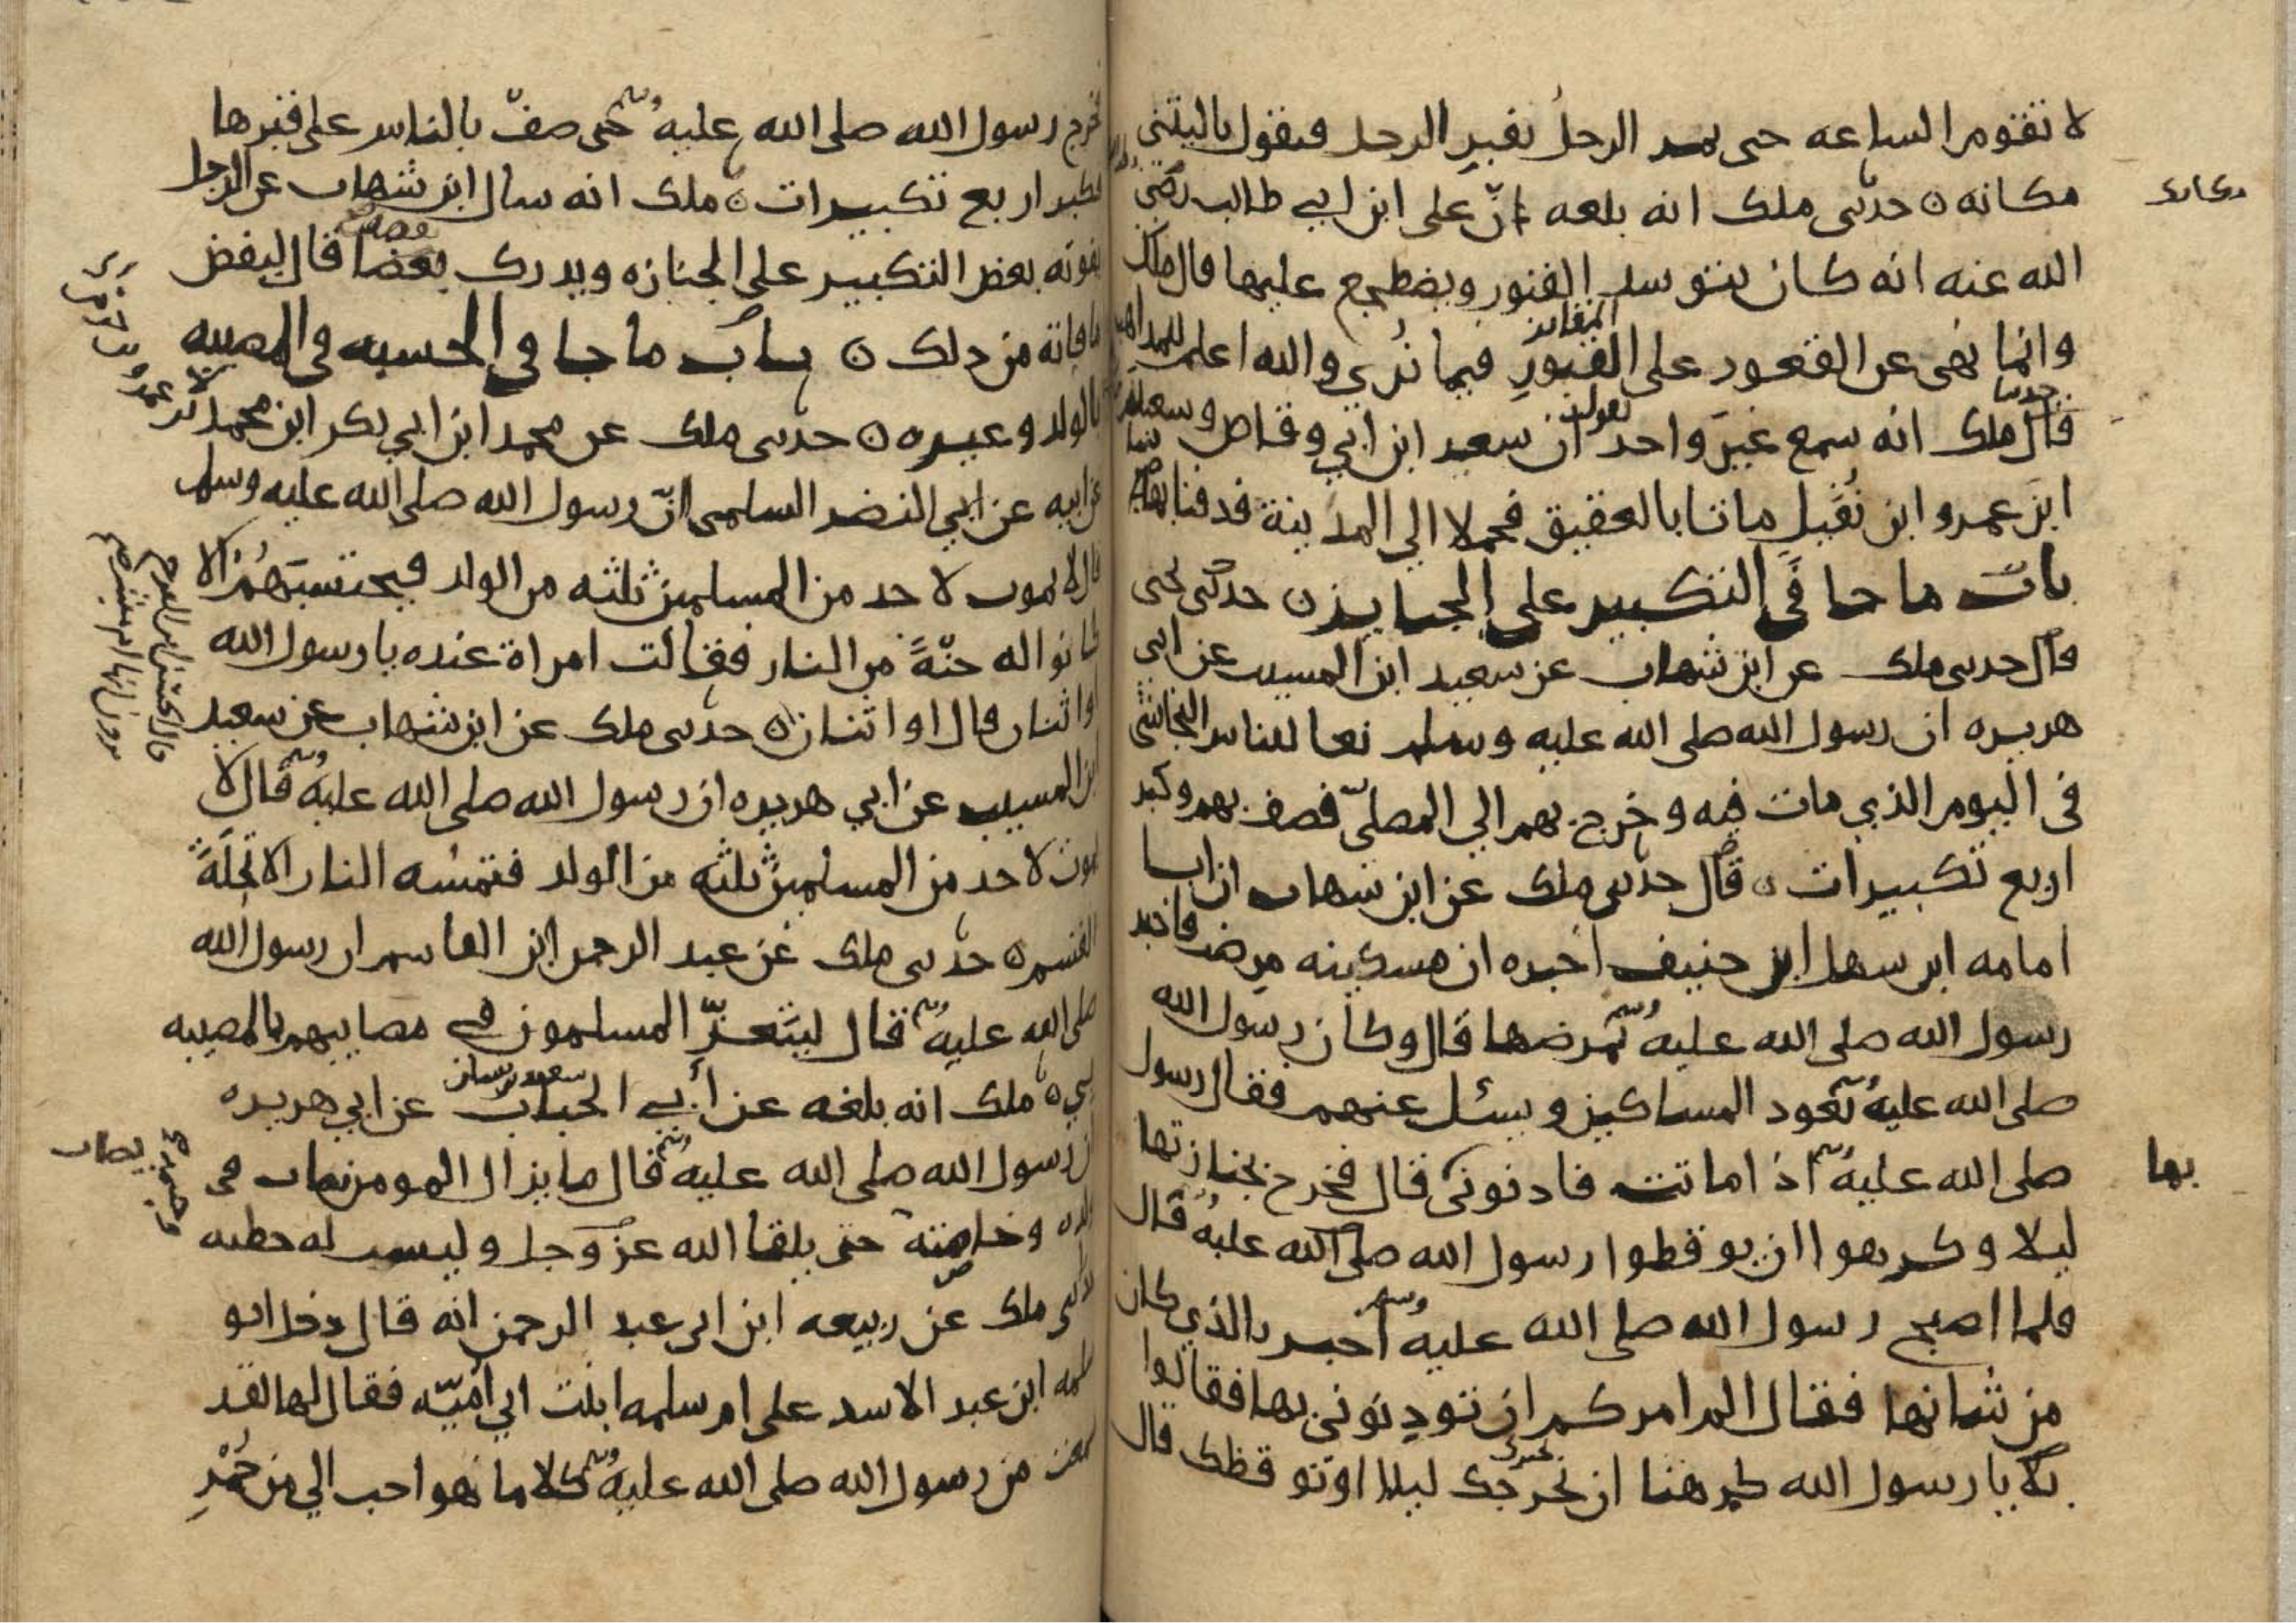 لا تقوم الساعه حتى يمر الرجل بقبر الرجل فيقول ياليتنى
مكانه ۞ حدثنى ملك انه بلغه انّ على ابن ابي طالب رضي
الله عنه انه كان يتوسد القبور ويضطجع عليها قال ملك
وانما نهى عن القعود على القبور فيما نُرى والله اعلم للمذاهب
قال ملك انه سمع غيرَ واحد يقول ان سعيد ابن ابي وقاص وسعيد
ابن عمرو ابن نفيل ماتا بالعقيق فحملا الي المدينة فدفنا بها
باب ما جا في التكبير على الجنايز ۞ حدثنى يحيى
قال حدثنى ملك عن ابن شهاب عن سعيد ابن المسيب عن ابي
هريره ان رسول الله صلى الله عليه وسلم نعا للناس النجاشى
فى اليوم الذي مات فيه وخرج بهم الي المصلىّ فصف بهم وكبر
اربع تكبيرات ۞ قال حدثنى ملك عن ابن شهاب ان ابا
امامه ابن سهل ابن حنيف اخبره ان مسكينه مرضت فاخبر
رسول الله صلى الله عليه وسلم بمرضها قال وكان رسول الله
صلى الله عليه وسلم يعود المساكين ويسئل عنهم فقال رسول
صلى الله عليه وسلم اذا ماتت فاذنونى قال فخرج بجنازتها
ليلا وكرهوا ان يوقظوا رسول الله صلى الله عليه قال
فلما اصبح رسول الله صلى الله عليه وسلم اخبر بالذي كان
من شانها فقال الم امركم ان توذنوني بها فقالوا
بلا يا رسول الله كرهنا ان نخرجك ليلا او نوقظك قال
مكانه
بها
فخرج رسول الله صلى الله عليه وسلم حتى صفّ بالناس على قبرها
فكبر اربع تكبيرات ۞ ملك انه سال ابن شهاب عن الرجل
يفوته بعض التكبير على الجنازه ويدرك بعضا قال ليقض
ما فاته من ذلك ۞ باب ما جا في الحسبه في المصيبه
بالولد وغيره ۞ حدثنى ملك عن محمد ابن ابي بكر ابن محمد
عن ابيه عن ابي النضر السلمى انّ رسول الله صلى الله عليه وسلم
قال لا يموت لاحد من المسلمين ثلثه من الولد فيحتسبَهُم الا
كانوا له جنّةً من النار فقالت امراة عنده يا رسول الله
او اثنان قال او اثنان ۞ حدثنى ملك عن ابن شهاب عن سعيد
ابن المسيب عن ابي هريره ان رسول الله صلى الله عليه وسلم قال لا
يموت لاحد من المسلمين ثلثه من الولد فتمسه النار الا تحلّة
القسم ۞ حدثنى ملك عن عبد الرحمن ابن القاسم ان رسول الله
صلى الله عليه وسلم قال ليتعزّ المسلمون في مصايبهم بالمصيبه
بي ۞ ملك انه بلغه عن أبي الحباب سعيد بن يسار عن ابي هريره
ان رسول الله صلى الله عليه وسلم قال ما يزال المومن يصاب فى
ولده وخاصته حتى يلقا الله عز وجل وليست له خطيه
حدثنى ملك عن ربيعه ابن ابي عبد الرحمن انه قال دخل ابو
سلمه ابن عبد الاسد على ام سلمه ابنت ابي أميّه فقال لها لقد
سمعت من رسول الله صلى الله عليه وسلم كلاما لهو احب الي من حُمْرِ
يصاب